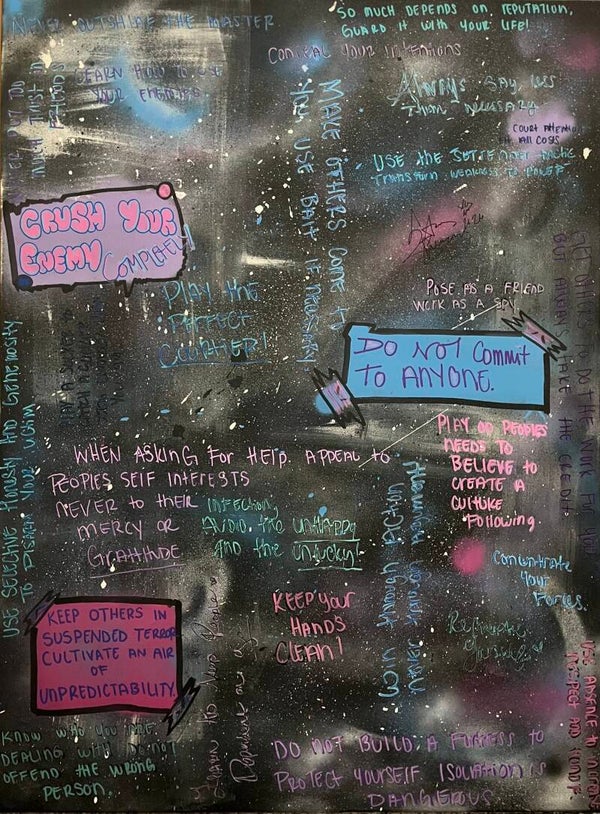 NEVER OUTSHINE THE MASTER
SO MUCH DEPENDS ON REPUTATION,
GUARD IT WITH YOUR LIFE!
CONCEAL YOUR INTENTIONS
LEARN HOW TO USE
YOUR ENEMIES
NEVER PUT TOO
MUCH TRUST IN
Always SAY LESS
THAN NECESSARY
COURT Attention
At All COSTS
MAKE OTHERS COME to
YOU USE BAIT IF NECESSARY
USE the SURRENDER TACTIC
TRANSFORM WEAKNESS TO POWER
CRUSH YOUR
ENEMY COMPLETELY
PLAY the
PERFECT
COURTIER!
POSE AS A FRIEND
WORK AS A SPY
GET OTHERS TO DO THE WORK FOR YOU
BUT ALWAYS TAKE THE CREDIT
DO NOT Commit
TO ANYONE.
USE SELECTIVE HONESTY AND GENEROSITY
TO DISARM YOUR VICTIM
PLAY ON PEOPLES
NEEDS TO
BELIEVE to
CREATE A
CULTLIKE
Following
WHEN ASKING FOR HELP. APPEAL to
PEOPLES SELF INTERESTS
NEVER TO their
MERCY OR
GRATITUDE
INFECTION:
AVOID the UNHAPPY
AND the UNLUCKY!
WIN through ACTION
NEVER through Argument
Concentrate
Your
Forces.
KEEP OTHERS IN
SUSPENDED TERROR
CULTIVATE AN AIR
OF
UNPREDICTABILITY.
KEEP Your
HANDS
CLEAN!
Learn to Keep People
Dependent on you
USE ABSENCE TO INCREASE
RESPECT AND HONOR
KNOW WHO YOU ARE
DEALING WITH DO NOT
OFFEND THE WRONG
PERSON.
DO NOT BUILD A FORTRESS to
PROTECT YOURSELF ISOLATION IS
DANGEROUS